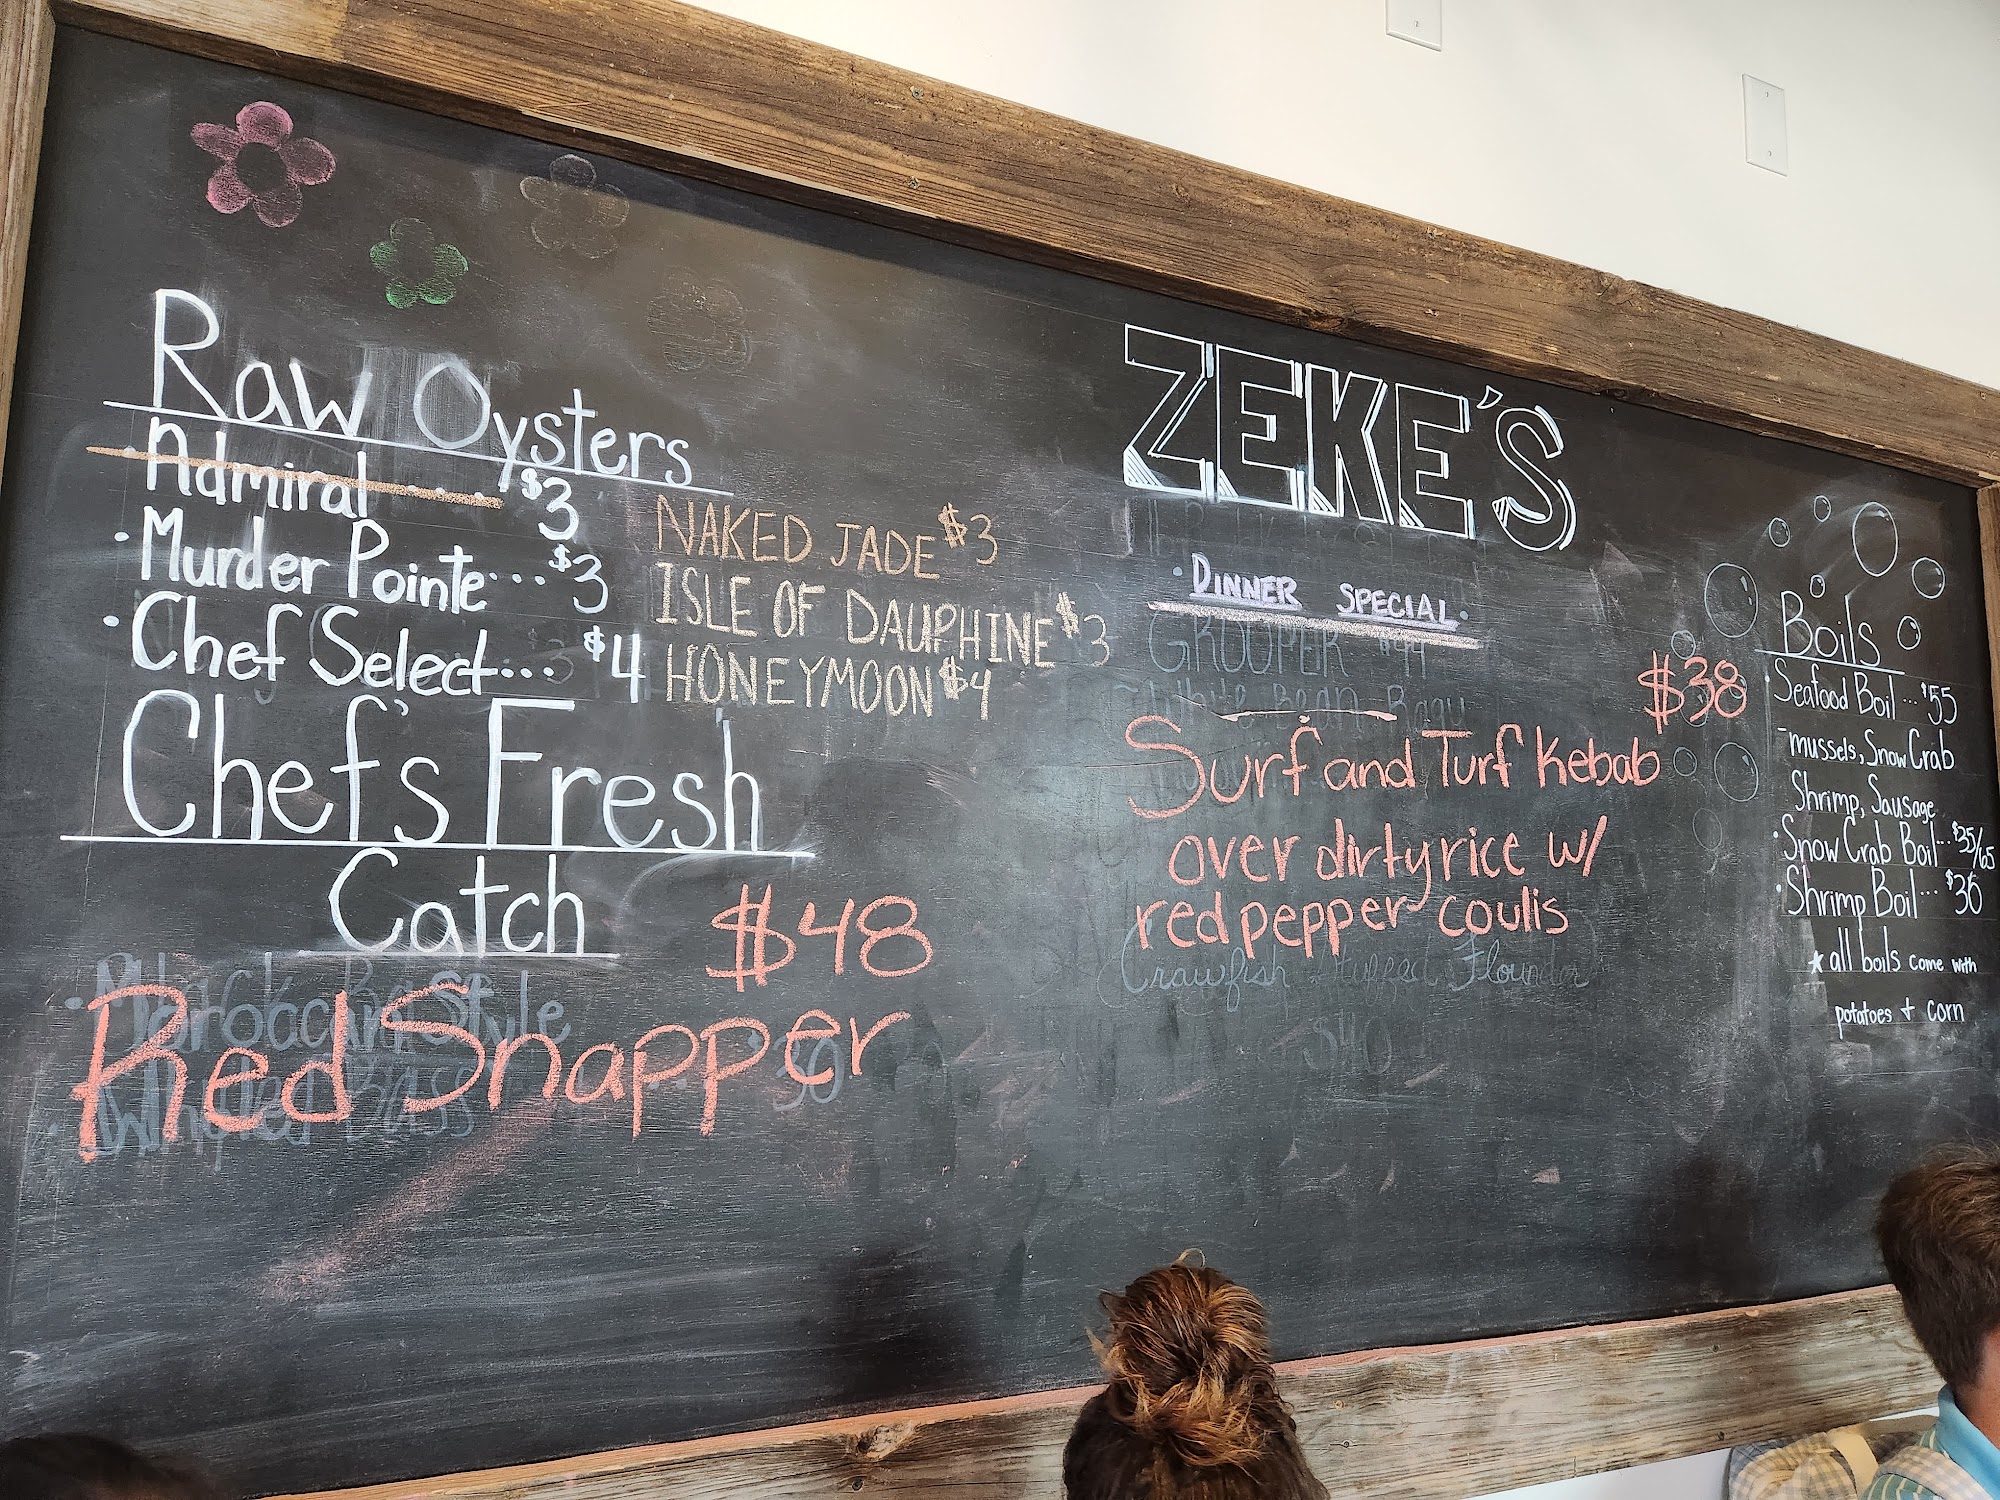 Raw Oysters
Admiral .... $3
• Murder Pointe... $3
• Chef Select... $4
NAKED JADE $3
ISLE OF DAUPHINE $3
HONEYMOON $4
Chef's Fresh
Catch
$48
Red Snapper
Moroccan Style
Bass
30
ZEKE'S
• DINNER SPECIAL •
GROOPER $44
White Bean Ragu
$38
Surf and Turf Kebab
over dirty rice w/
red pepper coulis
Crawfish Stuffed Flounder
$40
Boils
• Seafood Boil... $55
- mussels, Snow Crab
Shrimp, Sausage
• Snow Crab Boil... $35/65
• Shrimp Boil... $36
★ all boils come with
potatoes + corn